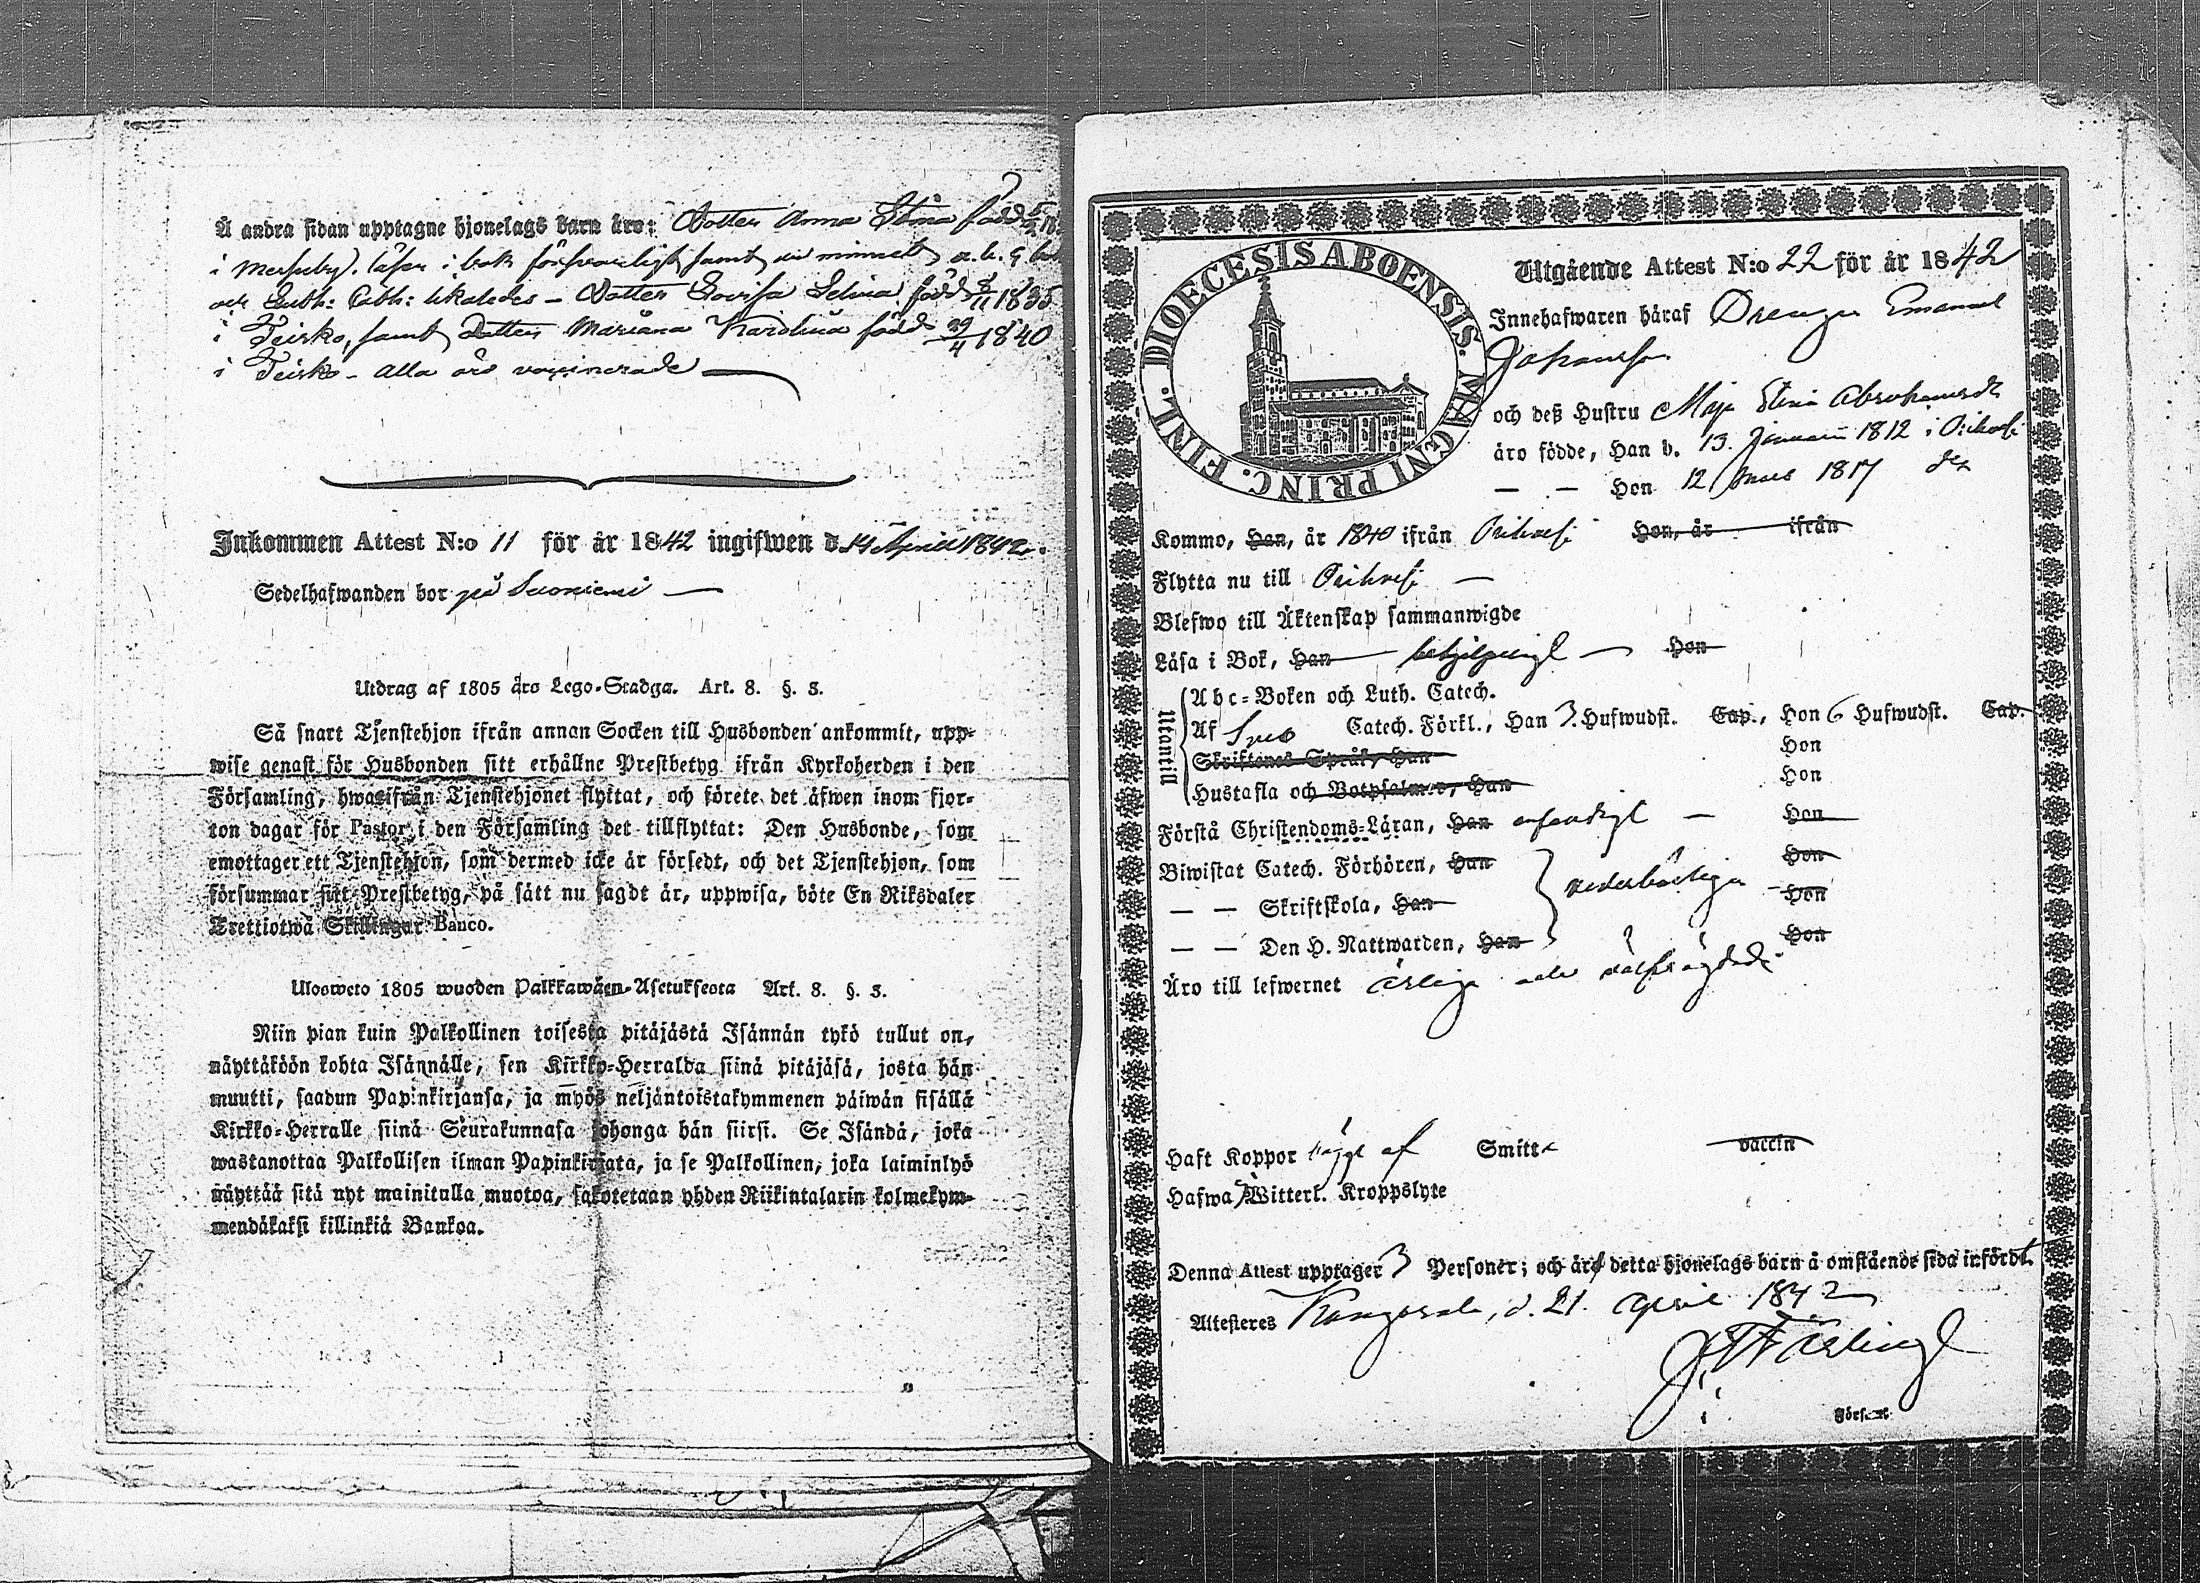 Å andra sidan upptagne hjonelags barn äro: Dotter Anna Stina född
i Messuby). läser i bok försvarligt samt ur minnet a. b. c. bok
och Luth: Cath: likaledes – Dotter Lovisa Selina född 1835
i Teisko, samt Dotter Mariana Karolina född 29/4 1840
i Teisko – alla äro vaccinerade
Inkommen Attest N:o 11 för år 1842 ingifwen d. 14 April 1842.
Sedelhafwanden bor på Suoniemi
Utdrag af 1805 års Lego-Stadga. Art. 8. §. 3.
Så snart Tjenstehjon ifrån annan Socken till Husbonden ankommit, upp-
wise genast för Husbonden sitt erhållne Prestbetyg ifrån Kyrkoherden i den
Församling, hwarifrån Tjenstehjonet flyttat, och förete det äfwen inom fjor-
ton dagar för Pastor i den Församling det tillflyttat: Den Husbonde, som
emottager ett Tjenstehjon, som dermed icke är försedt, och det Tjenstehjon, som
försummar sitt Prestbetyg, på sätt nu sagdt är, uppwisa, böte En Riksdaler
Trettiotwå Skillingar Banco.
Ulosweto 1805 wuoden Palkkawäen-Asetuksesta Art. 8. §. 3.
Niin pian kuin Palkollinen toisesta pitäjästä Isännän tykö tullut on,
näyttäköön kohta Isännälle, sen Kirkko-Herralda siinä pitäjäsä, josta hän
muutti, saadun Papinkirjansa, ja myös neljäntoistakymmenen päiwän sisällä
Kirkko-Herralle siinä Seurakunnasa johonga hän siirsi. Se Isändä, joka
wastanottaa Palkollisen ilman Papinkirjata, ja se Palkollinen, joka laiminlyö
näyttää sitä nyt mainitulla muotoa, sakotetaan yhden Riikintalarin kolmekym-
mendäkaksi killinkiä Bankoa.
DIOECESIS ABOENSIS. MAGNI PRINC. FINL.
Utgående Attest N:o 22 för år 1842
Innehafwaren häraf Drengen Emanuel
Johansson
och deß Hustru Maja Stina Abrahamsdr
äro födde, Han d. 13. Januari 1812 i Orihvesi
— — Hon 12 Mars 1817 der
Kommo, Han, år 1840 ifrån Orihvesi Hon, år ifrån
Flytta nu till Orihvesi
Blefwo till Äktenskap sammanwigde
Läsa i Bok, Han behjelpligt Hon
Utantill
Abc-Boken och Luth. Catech.
Af Catech. Förkl., Han 3. Hufwudst. Cap., Hon 6 Hufwudst. Cap.
Skriftenes Språk, Han Hon
Hustafla och Botpsalmer, Han Hon
Förstå Christendoms-Läran, Han enfaldigt Hon
Biwistat Catech. Förhören, Han Hon
— — Skriftskola, Han vederbörligen Hon
— — Den H. Nattwarden, Han Hon
Äro till lefwernet ärliga och välfrägdade
Haft Koppor Smitt vaccin
Hafwa Witterl. Kroppslyte
Denna Attest upptager 3 Personer; och äro detta hjonelags barn å omstående sida införde.
Attesteres Kangasala, d. 21. April 1842